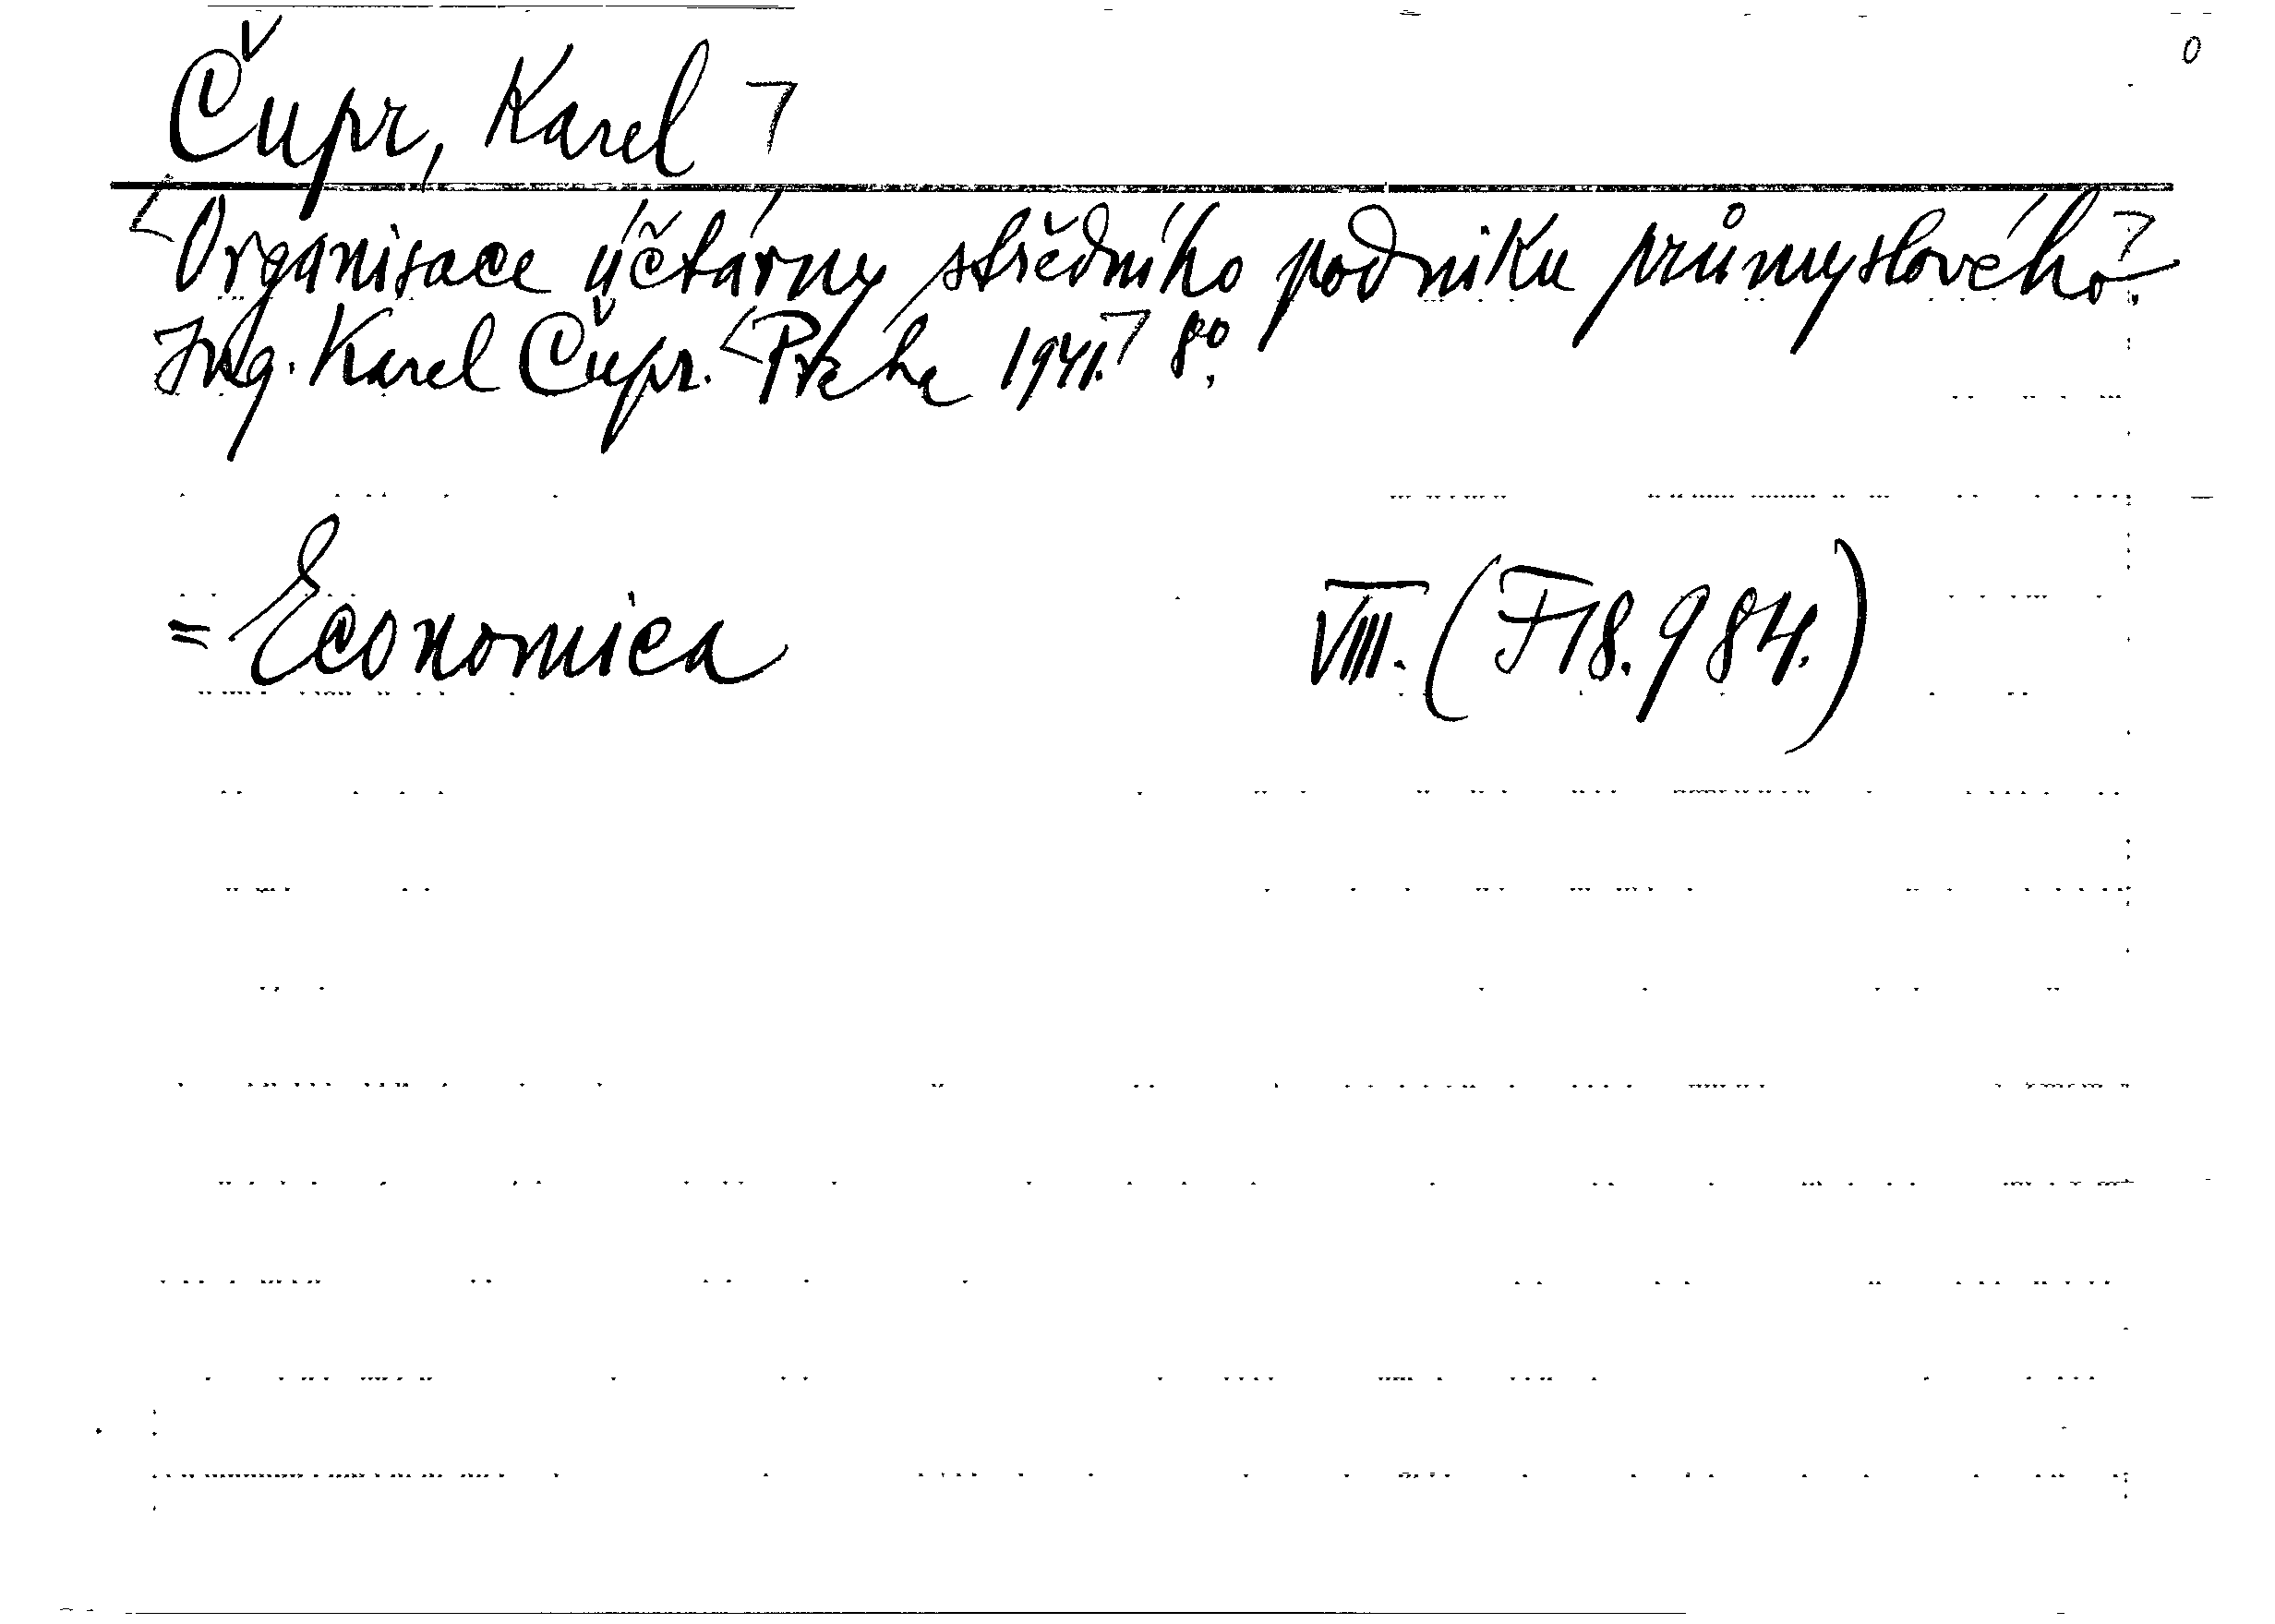 Čupr, Karel
Organisace účtárny středního podniku průmyslového.
Ing. Karel Čupr. Praha 1941. 8°.
= Economica VIII. (F 18.984.)